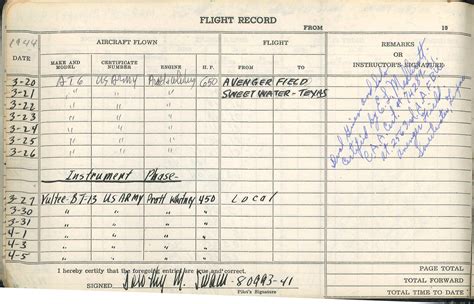 FLIGHT RECORD
FROM 19
1944
AIRCRAFT FLOWN FLIGHT REMARKS OR INSTRUCTOR'S SIGNATURE
DATE MAKE AND MODEL CERTIFICATE NUMBER ENGINE H. P. FROM TO
3-20 AT6 US Army 650 AVENGER FIELD
3-21 " " " SWEETWATER-TEXAS
3-22 " " "
3-24 " " "
3-25 " " "
3-26 " " "
Instrument Phase-
3-27 Vultee-BT-13 US ARMY Pratt Whitney 450 Local
3-30 " " "
3-31 " " "
4-1 " " "
4-5 " " "
Dual Hours and
Certified by
C.A.A. Cert.
at
Avenger Field
Sweetwater, Texas
I hereby certify that the foregoing entries are true and correct.
SIGNED Dorothy M. Swain-80993-41
Pilot's Signature
PAGE TOTAL
TOTAL FORWARD
TOTAL TIME TO DATE